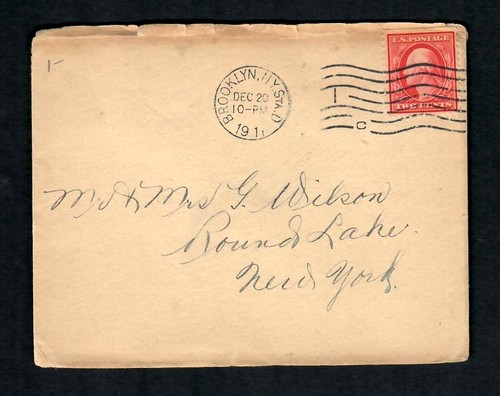 15
BROOKLYN, N.Y. STA. D
DEC 20
10-PM
1911
U.S. POSTAGE
TWO CENTS
I
C
Mr & Mrs G. Wilson
Round Lake.
New York.